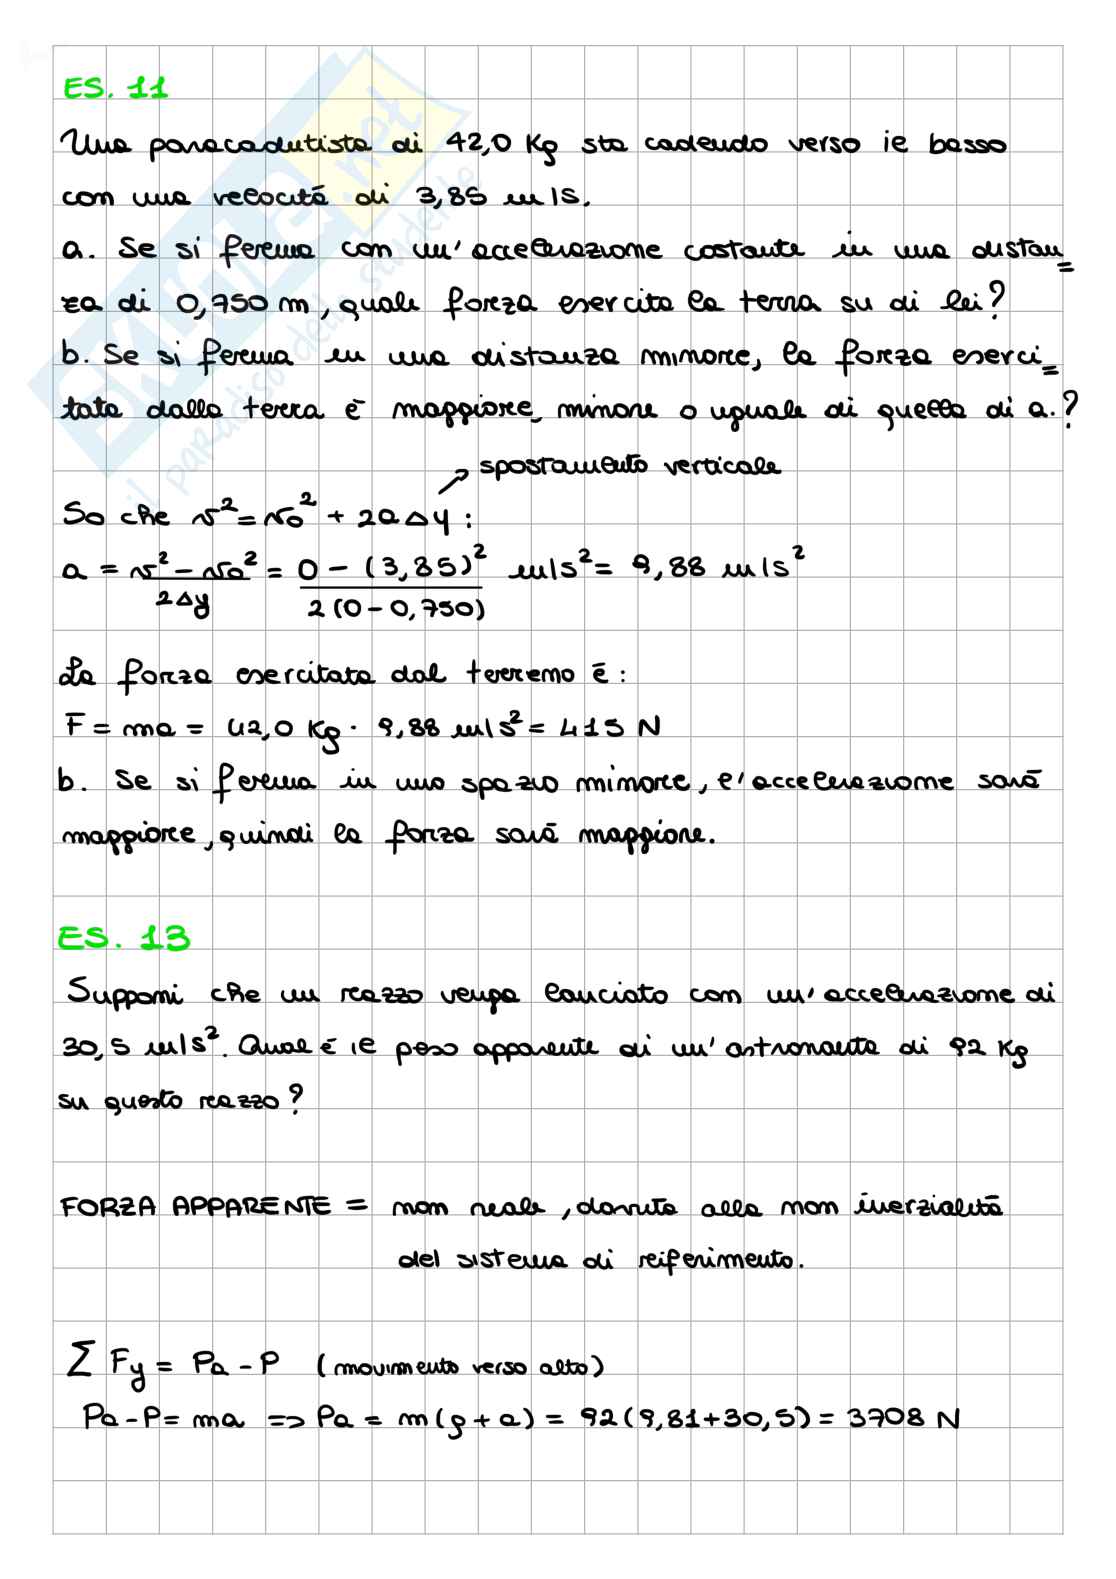 ES. 11
Una paracadutista di 42,0 Kg sta cadendo verso il basso
con una velocità di 3,85 m/s.
a. Se si ferma con un'accelerazione costante in una distan=
za di 0,750 m, quale forza esercita la terra su di lei?
b. Se si ferma in una distanza minore, la forza eserci=
tata dalla terra è maggiore, minore o uguale di quella di a.?
spostamento verticale
So che v² = v₀² + 2aΔy :
a = v² - v₀² / 2Δy = 0 - (3,85)² / 2(0 - 0,750) m/s² = 9,88 m/s²
La forza esercitata dal terreno è :
F = ma = 42,0 Kg · 9,88 m/s² = 415 N
b. Se si ferma in uno spazio minore, l'accelerazione sarà
maggiore, quindi la forza sarà maggiore.
ES. 13
Supponi che un razzo venga lanciato con un'accelerazione di
30,5 m/s². Qual è il peso apparente di un'astronauta di 92 Kg
su questo razzo?
FORZA APPARENTE = non reale, dovuta alla non inerzialità
del sistema di riferimento.
Σ Fy = Pa - P (movimento verso alto)
Pa - P = ma => Pa = m(g + a) = 92(9,81+30,5) = 3708 N
SKUOLA.net
il paradiso dello studente